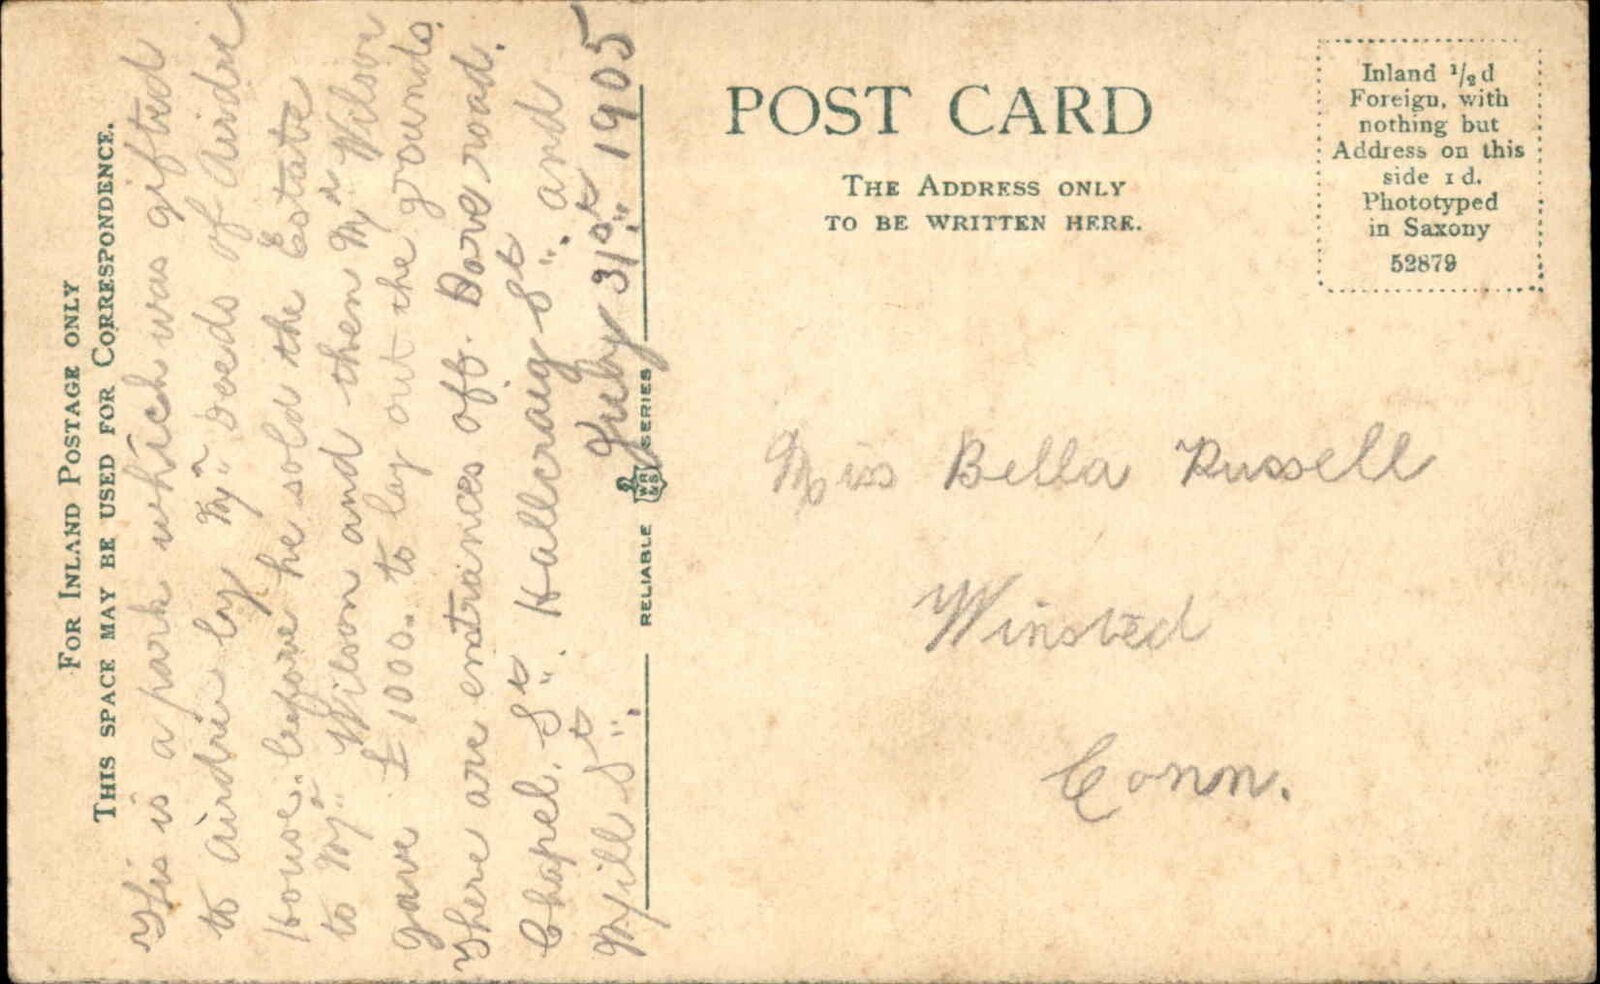 FOR INLAND POSTAGE ONLY
THIS SPACE MAY BE USED FOR CORRESPONDENCE.
This is a park which was gifted
to Airdrie by Mr Deeds of Airdrie
House. before he sold the Estate
to Mr Wilson and then Mr Wilson
gave £1000. to lay out the grounds.
There are entrances off. Dove road.
Chapel. St. Hallcraig St. and
Mill St.
July 31st 1905
RELIABLE WR&S SERIES
POST CARD
THE ADDRESS ONLY
TO BE WRITTEN HERE.
Inland 1/2d
Foreign, with
nothing but
Address on this
side 1d.
Phototyped
in Saxony
52879
Miss Bella Russell
Winsted
Conn.